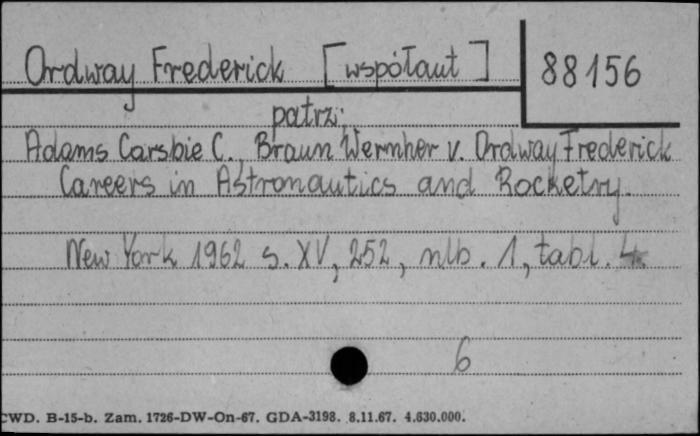 Ordway Frederick [współaut] 88156
patrz:
Adams Carsbie C., Braun Wernher v. Ordway Frederick
Careers in Astronautics and Rocketry.
New York 1962 s. XV, 252, nlb. 1, tabl. 4.
6
CWD. B-15-b. Zam. 1726-DW-On-67. GDA-3198. 8.11.67. 4.630.000.